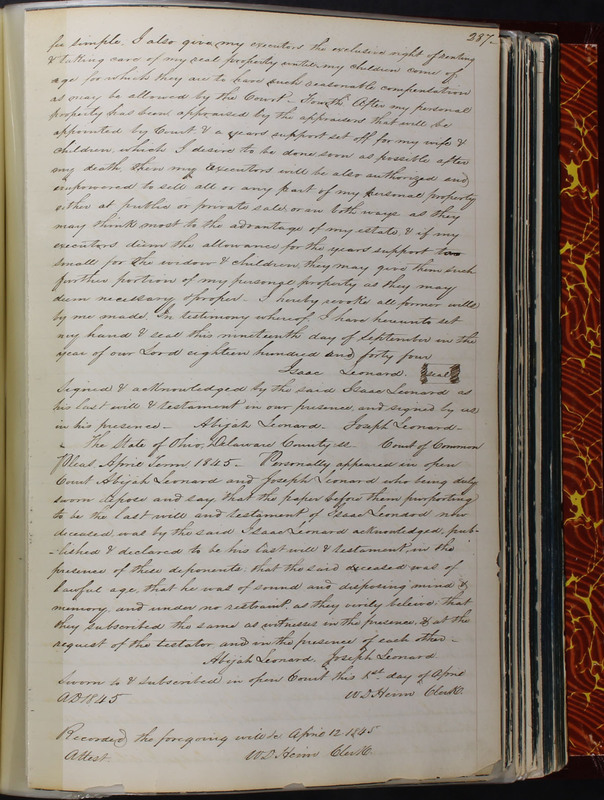 287
fee simple. I also give my executors the exclusive right of renting
& taking care of my real property until my children come of
age for which they are to have such reasonable compensation
as may be allowed by the Court – Fourth After my personal
property has been appraised by the appraisers that will be
appointed by Court & a years support set off for my wife &
children, which I desire to be done soon as possible after
my death, then my Executors will be also authorized and
empowered to sell all or any part of my personal property
either at public or private sale, or on both ways as they
may think most to the advantage of my estate, & if my
executors deem the allowance for the years support too
small for the widow & children, they may give them such
further portion of my personal property as they may
deem necessary & proper – I hereby revoke all former wills
by me made. In testimony whereof, I have hereunto set
my hand & seal this nineteenth day of September in the
year of our Lord eighteen hundred and forty four
Isaac Leonard. seal
Signed & acknowledged by the said Isaac Leonard as
his last will & testament in our presence, and signed by us
in his presence – Abijah Leonard – Joseph Leonard –
The State of Ohio, Delaware County ss. Court of Common
Pleas, April Term 1845 – Personally appeared in open
Court Abijah Leonard and Joseph Leonard who being duly
sworn depose and say that the paper before them purporting
to be the last will and testament of Isaac Leonard now
deceased, was by the said Isaac Leonard acknowledged, pub-
-lished & declared to be his last will & testament, in the
presence of these deponents, that the said deceased was of
lawful age, that he was of sound and disposing mind &
memory, and under no restraint, as they verily believe, that
they subscribed the same as witnesses in the presence, & at the
request of the testator and in the presence of each other –
Abijah Leonard. Joseph Leonard
Sworn to & subscribed in open Court this day of April
AD 1845 W D Heim Clerk.
Recorded the foregoing will &c April 12 1845
Attest. W D Heim Clerk.